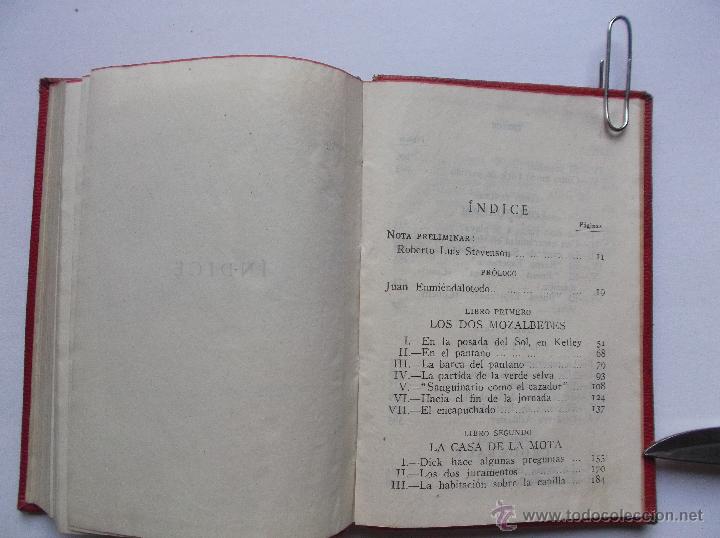 ÍNDICE
Páginas
NOTA PRELIMINAR:
Roberto Luis Stevenson ... ... ... ... ... 11
PRÓLOGO
Juan Enmiéndalotodo... ... ... ... ... ... 19
LIBRO PRIMERO
LOS DOS MOZALBETES
I.—En la posada del Sol, en Ketley 51
II.—En el pantano ... ... ... ... 68
III.—La barca del pantano ... ... 79
IV.—La partida de la verde selva ... 93
V.—"Sanguinario como el cazador" ... 108
VI.—Hacia el fin de la jornada ... ... 124
VII.—El encapuchado ... ... ... ... 137
LIBRO SEGUNDO
LA CASA DE LA MOTA
I.—Dick hace algunas preguntas ... 155
II.—Los dos juramentos ... ... ... 170
III.—La habitación sobre la capilla ... 184
ÍNDICE
© www.todocoleccion.net